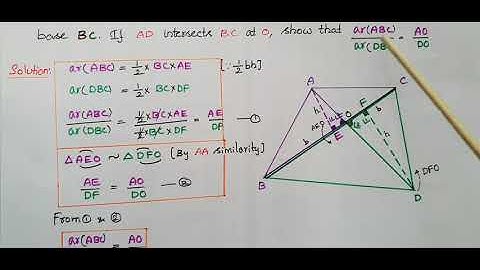 base BC. If AD intersects BC at O, show that ar(ABC)/ar(DBC) = AO/DO
Solution:
ar(ABC) = 1/2 x BC x AE [∵ 1/2 bh]
ar(DBC) = 1/2 x BC x DF
ar(ABC)/ar(DBC) = 1/2 x BC x AE / 1/2 x BC x DF = AE/DF —①
△AEO ~ △DFO [By AA similarity]
AE/DF = AO/DO —②
From ① & ②
ar(ABC) = AO
A
C
h
F
b
O
AEO
E
b
h
B
D
DFO